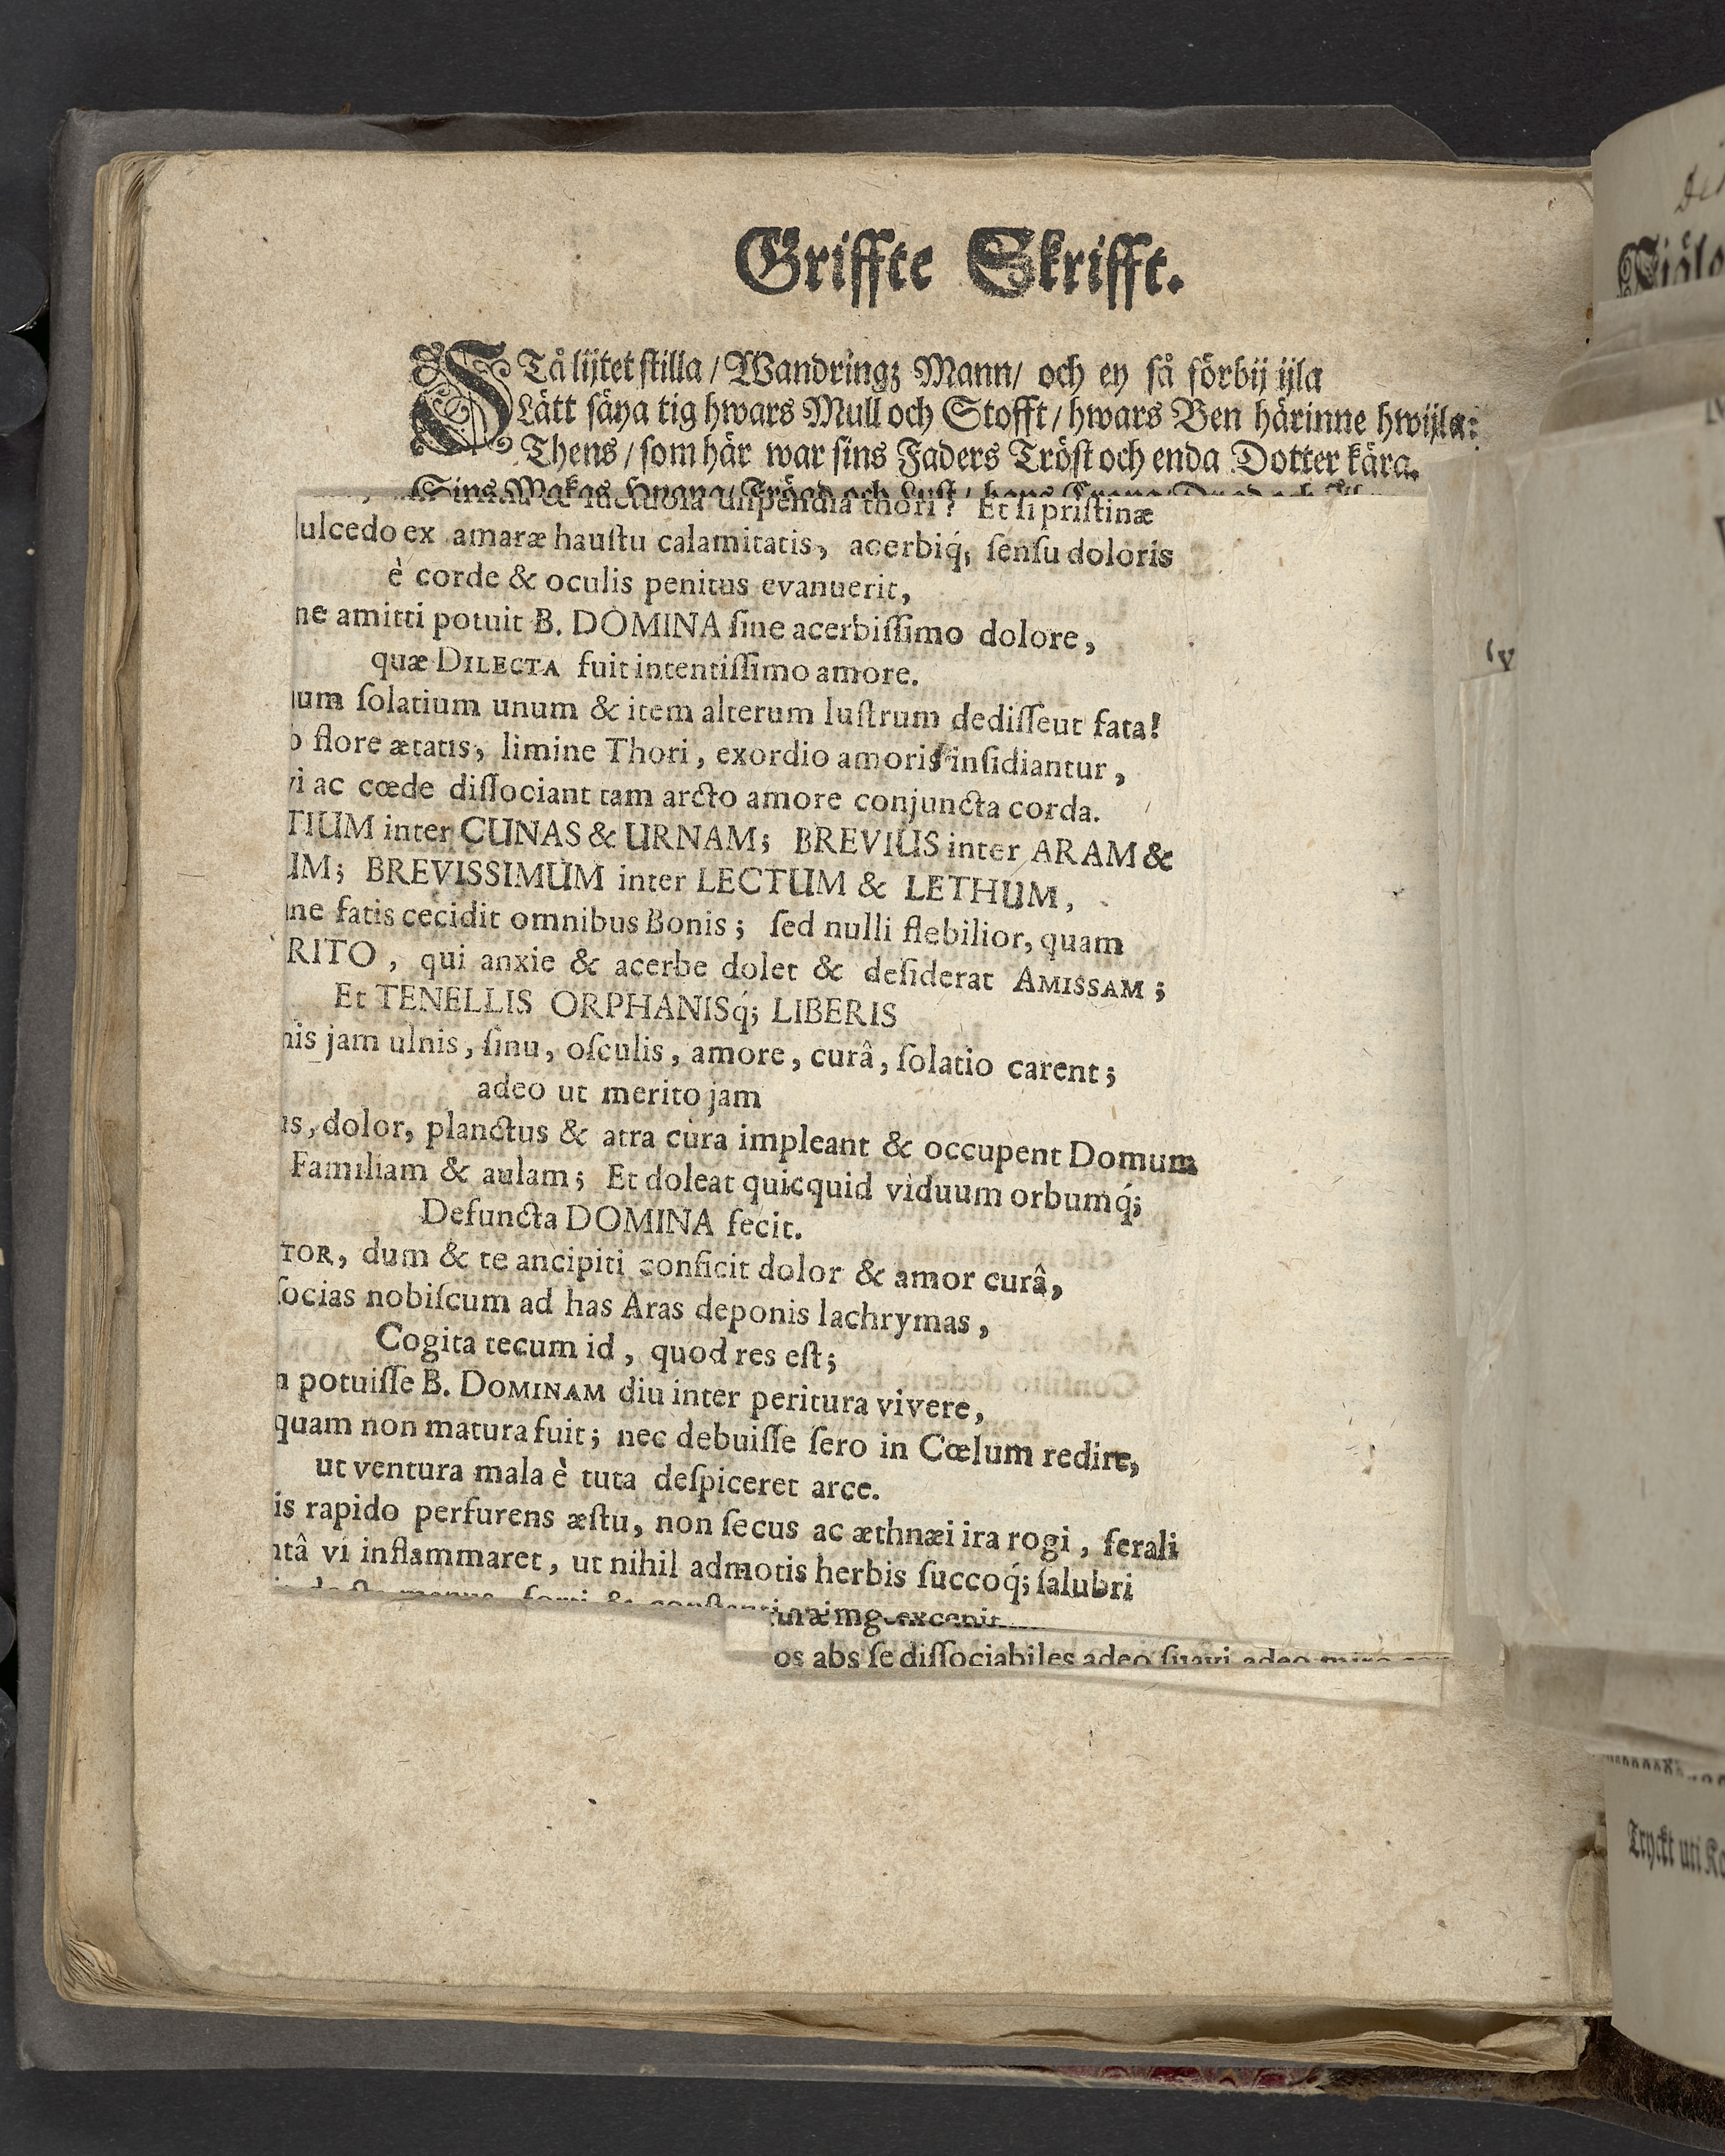 Griffte Skrifft.
STå lijtet stilla / Wandringz Mann / och ey så förbij ijla
Lätt säya tig hwars Mull och Stofft / hwars Ben härinne hwijla:
Thens / som här war sins Faders Tröst och enda Dotter kära.
Sins Makas Hugna / Frögd och Lust / hans
thori? Et si pristinæ
ulcedo ex amaræ haustu calamitatis, acerbiq́; sensu doloris
è corde & oculis penitus evanuerit,
ne amitti potuit B. DOMINA sine acerbissimo dolore,
quæ DILECTA fuit intentissimo amore.
um solatium unum & item alterum lustrum dedisseut fata!
o flore ætatis, limine Thori, exordio amoris insidiantur,
vi ac cœde dissociant tam arcto amore conjuncta corda.
TIUM inter CUNAS & URNAM; BREVIUS inter ARAM &
UM; BREVISSIMUM inter LECTUM & LETHUM,
ne fatis cecidit omnibus Bonis; sed nulli flebilior, quam
RITO, qui anxie & acerbe dolet & desiderat AMISSAM;
Et TENELLIS ORPHANISq́; LIBERIS
nis jam ulnis, sinu, osculis, amore, curâ, solatio carent;
adeo ut merito jam
us, dolor, planctus & atra cura impleant & occupent Domum
Familiam & aulam; Et doleat quicquid viduum orbumq́;
Defuncta DOMINA fecit.
TOR, dum & te ancipiti conficit dolor & amor curâ,
socias nobiscum ad has Aras deponis lachrymas,
Cogita tecum id, quod res est;
n potuisse B. DOMINAM diu inter peritura vivere,
quam non matura fuit; nec debuisse sero in Cœlum redire,
ut ventura mala è tuta despiceret arce.
is rapido perfurens æstu, non secus ac æthnæi ira rogi, ferali
ntâ vi inflammaret, ut nihil admotis herbis succoq́; salubri
os abs se dissociabiles adeo suavi adeo
Tryckt uti